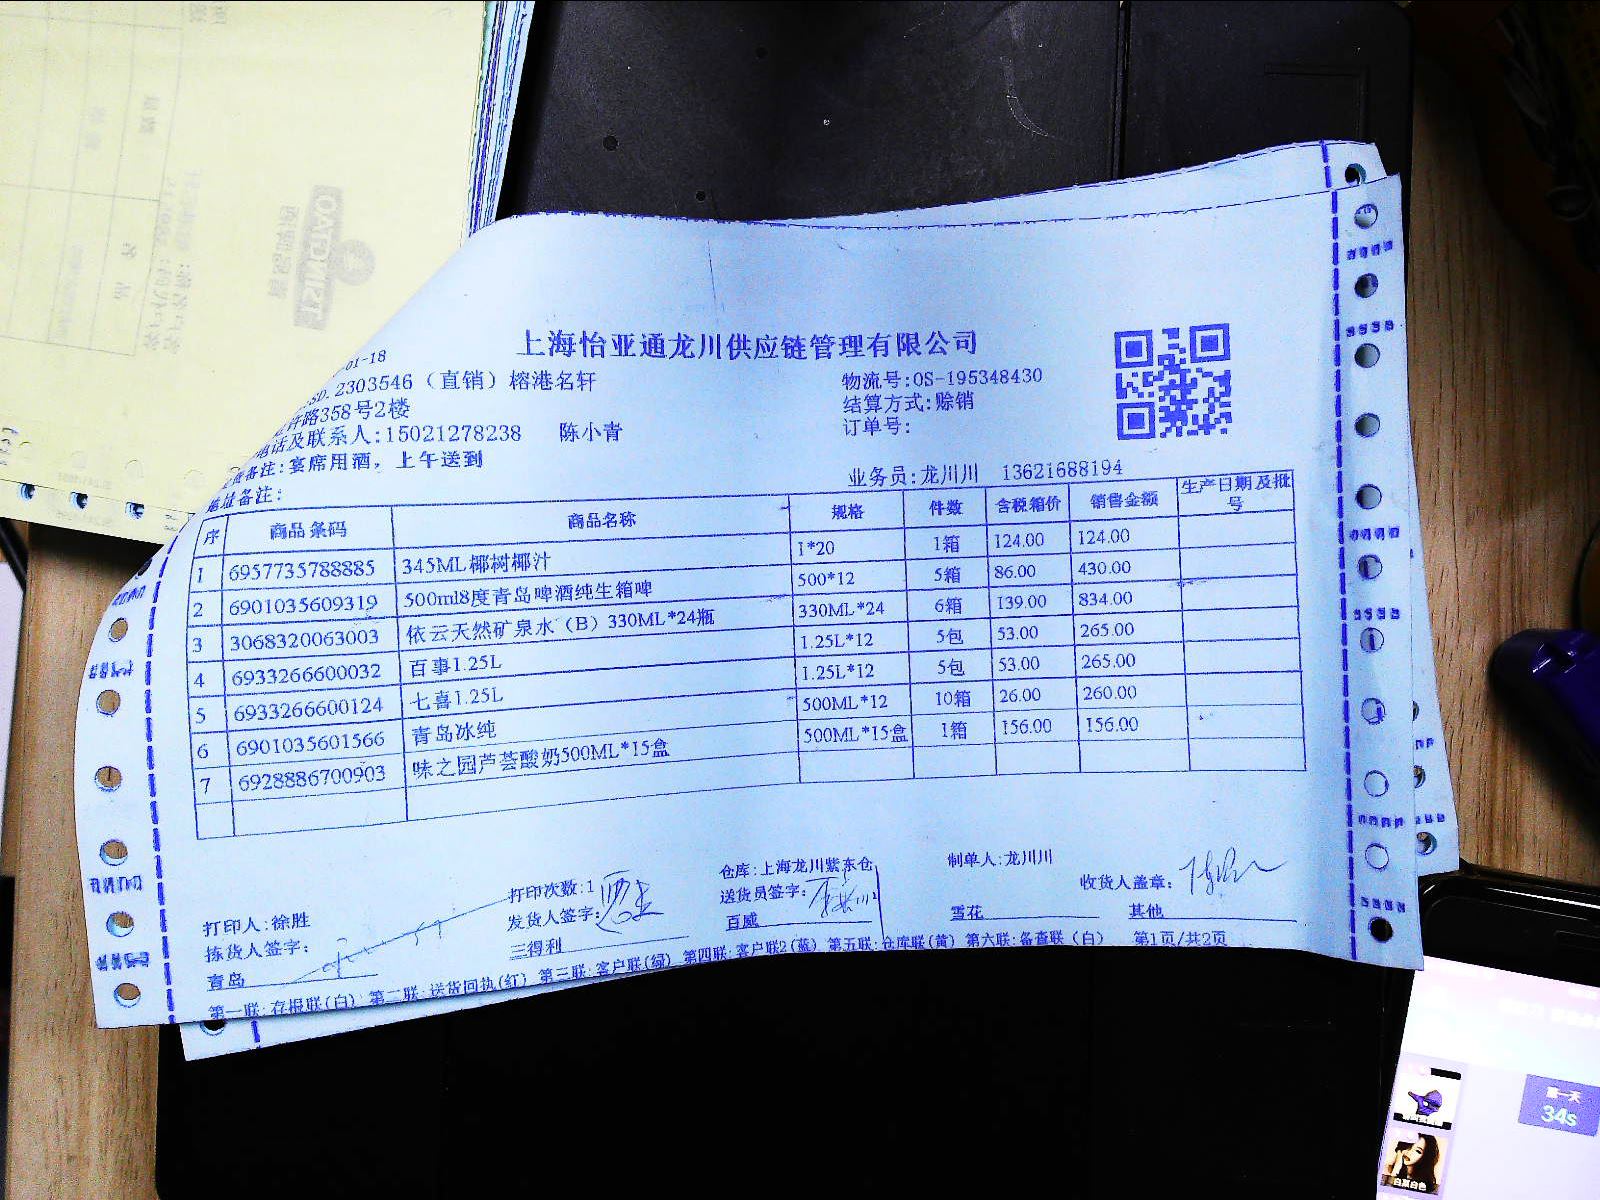 上海怡亚通龙川供应链管理有限公司
01-18
SD.2303546（直销）榕港名轩
物流号:OS-195348430
轩路358号2楼
结算方式:赊销
电话及联系人:15021278238 陈小青
订单号:
备注:宴席用酒，上午送到
业务员:龙川川 13621688194
地址备注:
序 商品条码 商品名称 规格 件数 含税箱价 销售金额 生产日期及批号
1 6957735788885 345ML椰树椰汁 1*20 1箱 124.00 124.00
2 6901035609319 500ml8度青岛啤酒纯生箱啤 500*12 5箱 86.00 430.00
3 3068320063003 依云天然矿泉水（B）330ML*24瓶 330ML*24 6箱 139.00 834.00
4 6933266600032 百事1.25L 1.25L*12 5包 53.00 265.00
5 6933266600124 七喜1.25L 1.25L*12 5包 53.00 265.00
6 6901035601566 青岛冰纯 500ML*12 10箱 26.00 260.00
7 6928886700903 味之园芦荟酸奶500ML*15盒 500ML*15盒 1箱 156.00 156.00
打印人:徐胜 打印次数:1 仓库:上海龙川紫东仓 制单人:龙川川
拣货人签字: 发货人签字: 送货员签字: 收货人盖章:
青岛 三得利 百威 雪花 其他
第一联:存根联(白) 第二联:送货回执(红) 第三联:客户联(绿) 第四联:客户联2(蓝) 第五联:仓库联(黄) 第六联:备查联(白) 第1页/共2页
34s